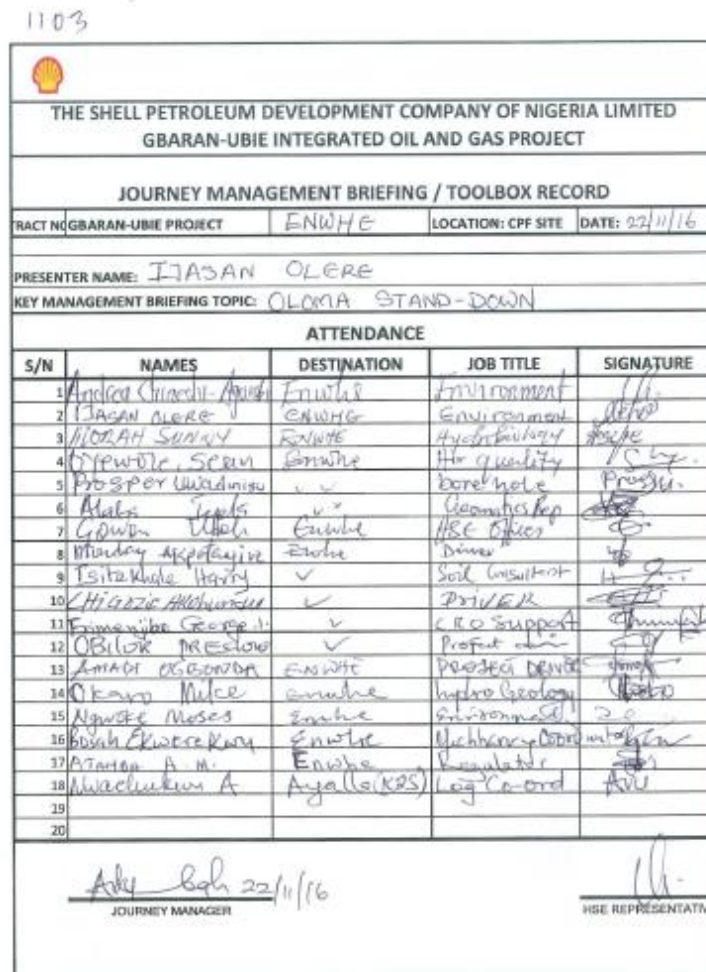 1103
THE SHELL PETROLEUM DEVELOPMENT COMPANY OF NIGERIA LIMITED
GBARAN-UBIE INTEGRATED OIL AND GAS PROJECT
JOURNEY MANAGEMENT BRIEFING / TOOLBOX RECORD
TRACT NO GBARAN-UBIE PROJECT ENWHE LOCATION: CPF SITE DATE: 22/11/16
PRESENTER NAME: IJASAN OLERE
KEY MANAGEMENT BRIEFING TOPIC: OLOMA STAND-DOWN
ATTENDANCE
S/N NAMES DESTINATION JOB TITLE SIGNATURE
1 Enwhe Environment
2 IJASAN OLERE ENWHE Environment
3 MORAH SUNNY ENWHE Hydrobiology
4 Oyewole, Seun Enwhe Air quality
5 Prosper ✓✓ borehole
6 ✓✓ Geomatics Rep
7 Gowon Enwhe HSE Officer
8 Monday Enwhe Driver
9 Harry ✓ Soil Consultant
10 CHIGOZIE ✓ DRIVER
11 George ✓ CRO Support
12 OBILOR ✓ Project
13 AMADI OGBONDA ENWHE PROJECT DRIVER
14 Okaro Mike enwhe hydro Geology
15 Moses Enwhe Environment
16 Enwhe
17 A. M. Enwhe Regulator
18 Nwachukwu A (K2S) Log Co-ord
19
20
22/11/16
JOURNEY MANAGER HSE REPRESENTATIV